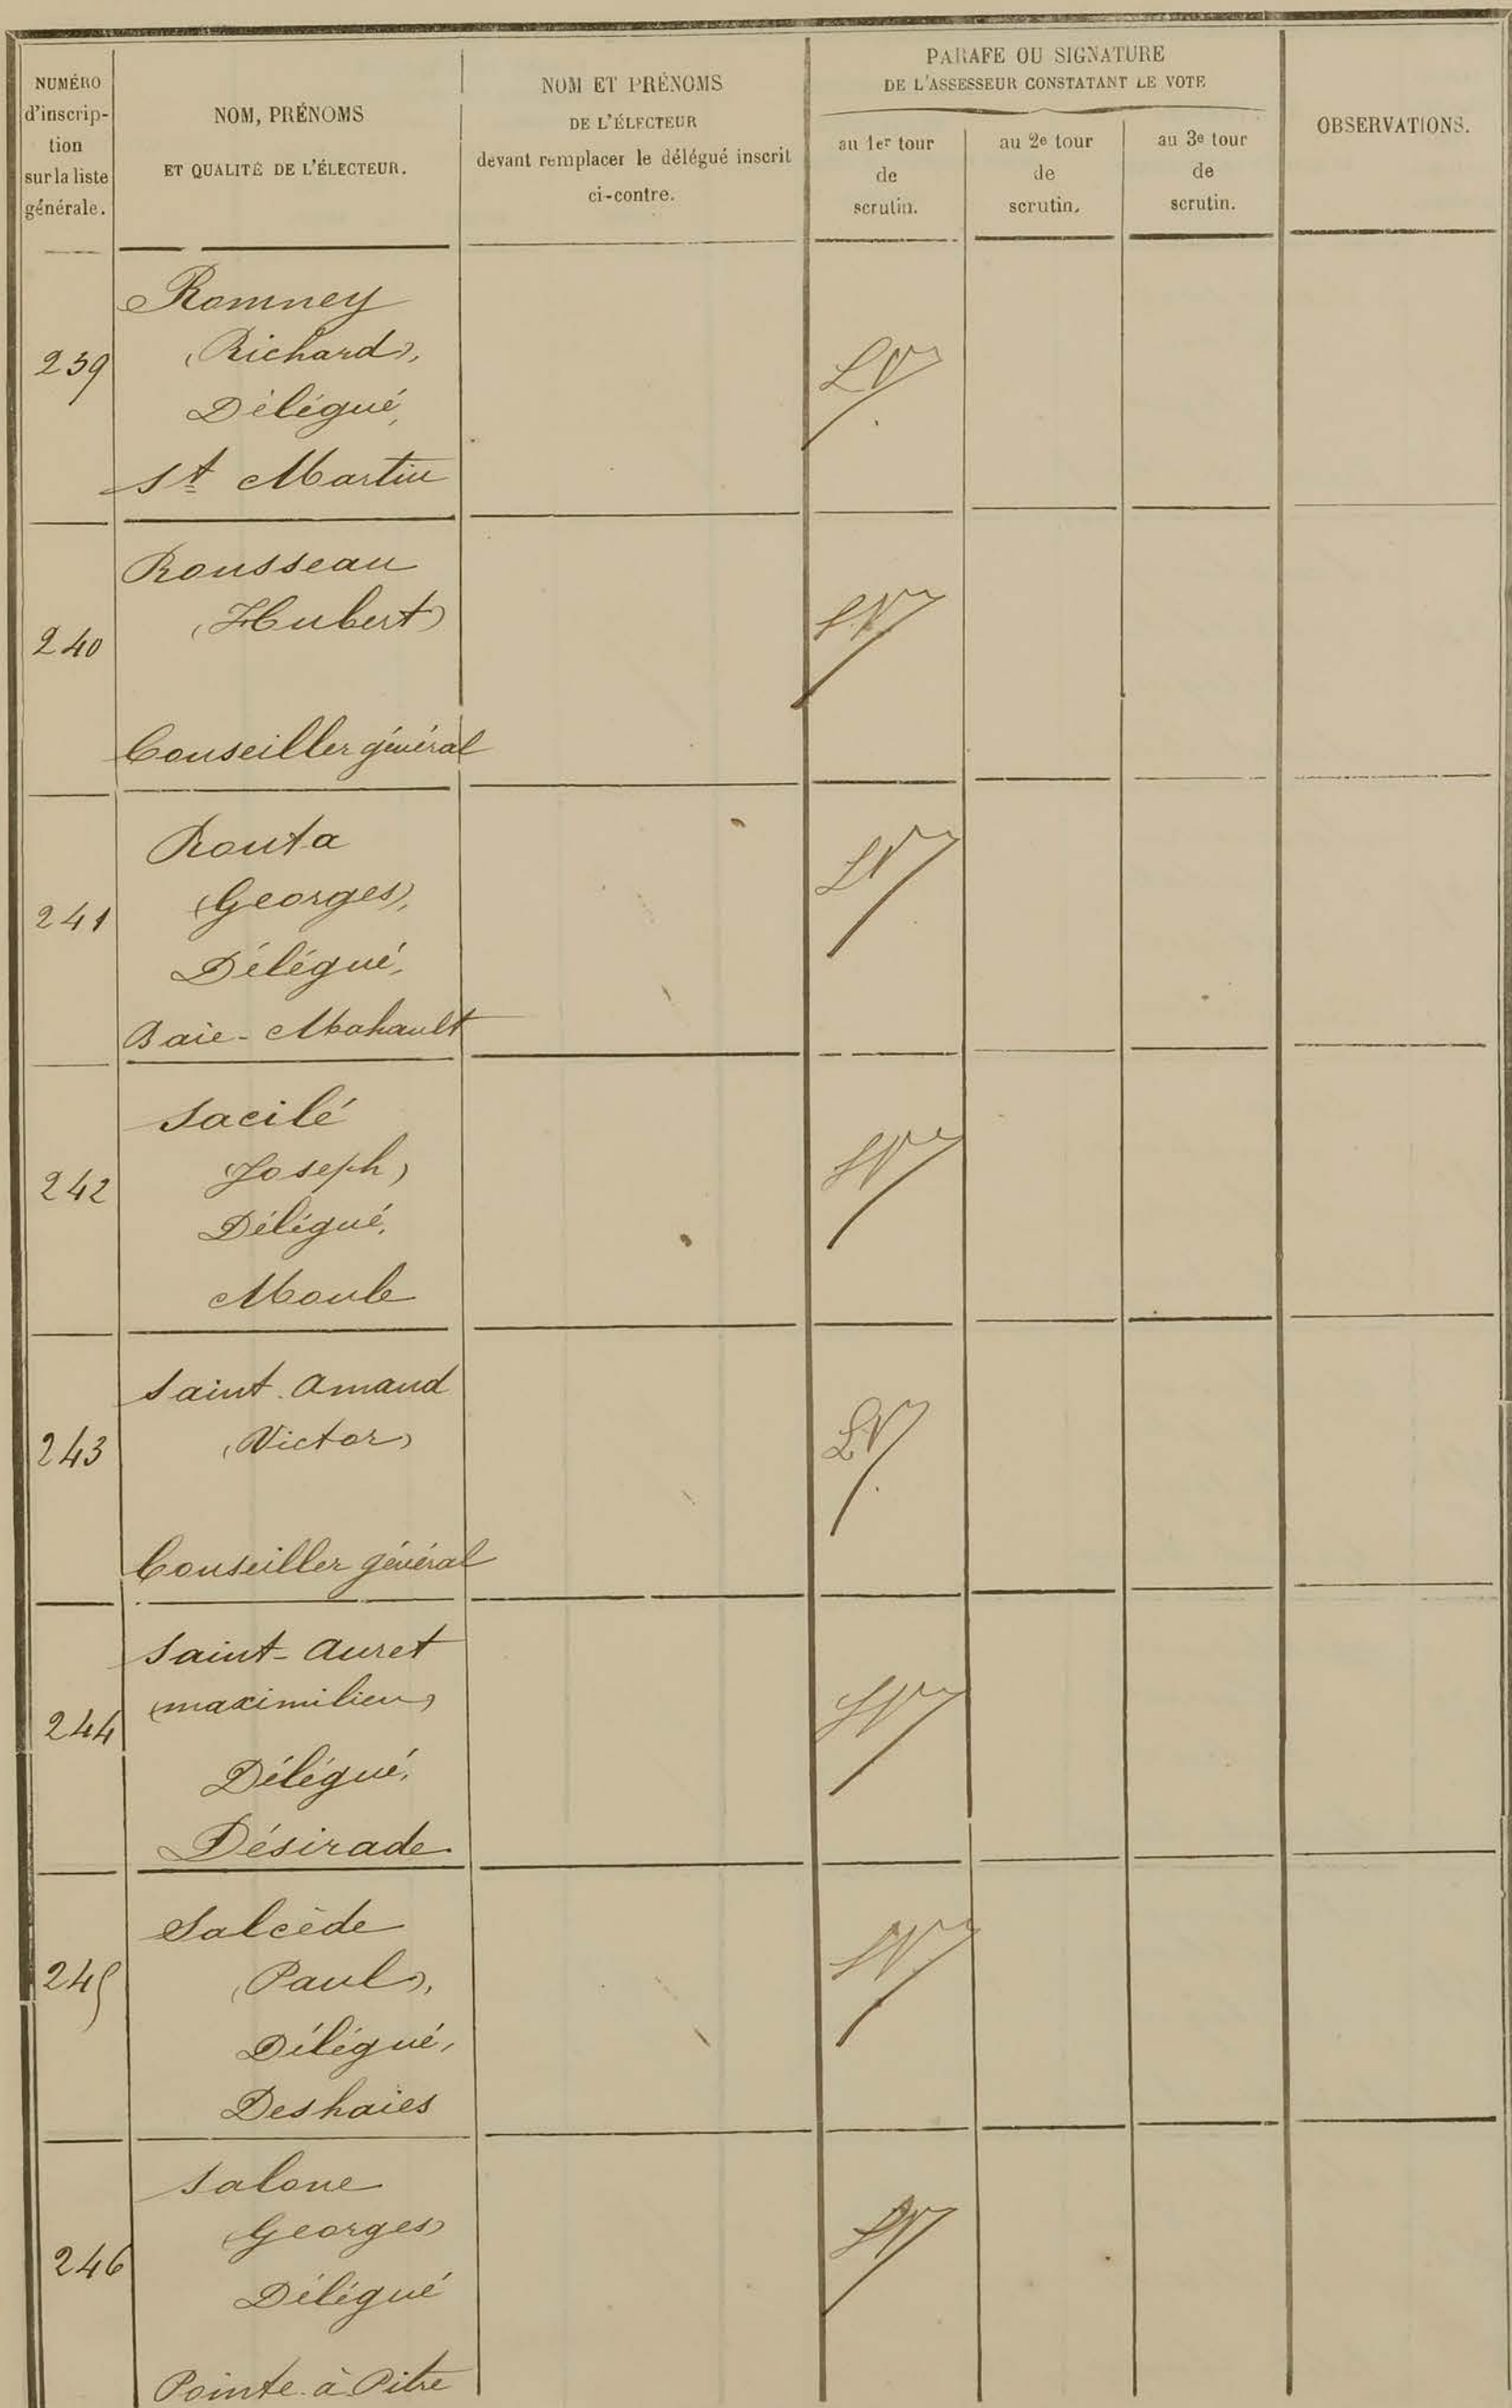 NUMÉRO
d'inscrip-
tion
sur la liste
générale.
NOM, PRÉNOMS
ET QUALITÉ DE L'ÉLECTEUR.
NOM ET PRÉNOMS
DE L'ÉLECTEUR
devant remplacer le délégué inscrit
ci-contre.
PARAFE OU SIGNATURE
DE L'ASSESSEUR CONSTATANT LE VOTE
au 1er tour
de
scrutin.
au 2e tour
de
scrutin.
au 3e tour
de
scrutin.
OBSERVATIONS.
239
Romney
(Richard),
Délégué,
St Martin
LV
240
Rousseau
(Hubert)
Conseiller général
LV
241
Routa
(Georges),
Délégué,
Baie-Mahault
LV
242
Sacilé
(Joseph)
Délégué,
Moule
LV
243
Saint-Amand
(Victor)
Conseiller général
LV
244
Saint-Auret
(Maximilien)
Délégué,
Désirade
LV
245
Salcède
(Paul),
Délégué,
Deshaies
LV
246
Salone
(Georges)
Délégué
Pointe-à-Pitre
LV